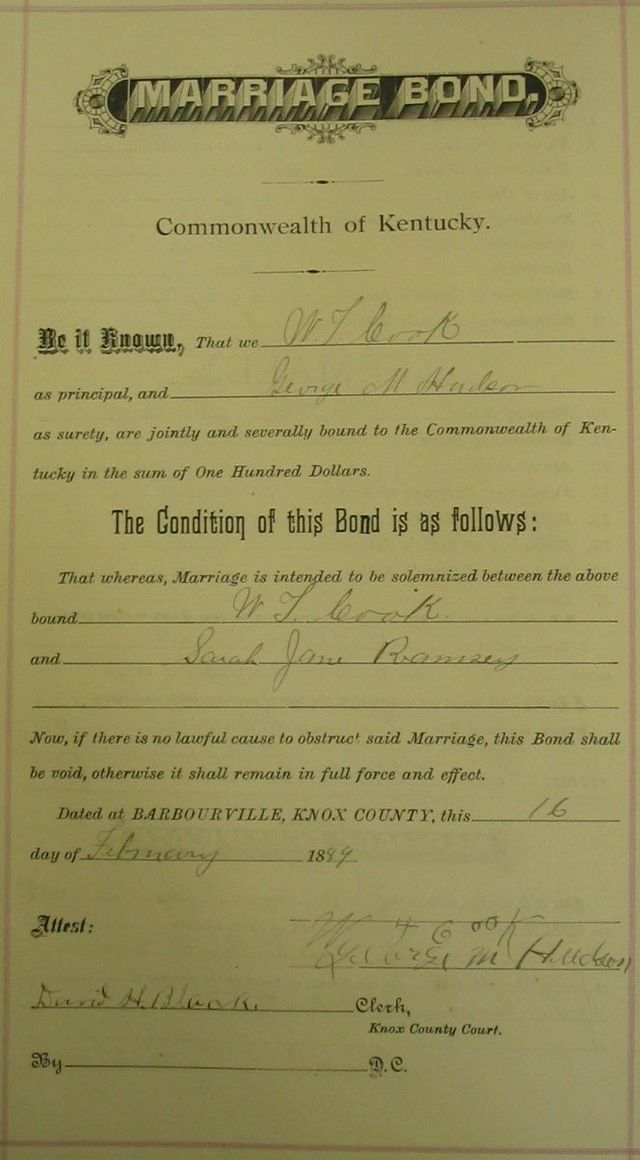 MARRIAGE BOND,
Commonwealth of Kentucky.
Be it Known, That we W. T. Cook
as principal, and George M Hudson
as surety, are jointly and severally bound to the Commonwealth of Ken-
tucky in the sum of One Hundred Dollars.
The Condition of this Bond is as follows:
That whereas, Marriage is intended to be solemnized between the above
bound W. T. Cook
and Sarah Jane Ramsey
Now, if there is no lawful cause to obstruct said Marriage, this Bond shall
be void, otherwise it shall remain in full force and effect.
Dated at BARBOURVILLE, KNOX COUNTY, this 16
day of February 1889
Attest: W Cook
George M Hudson
David H. Clerk,
Knox County Court.
By D.C.